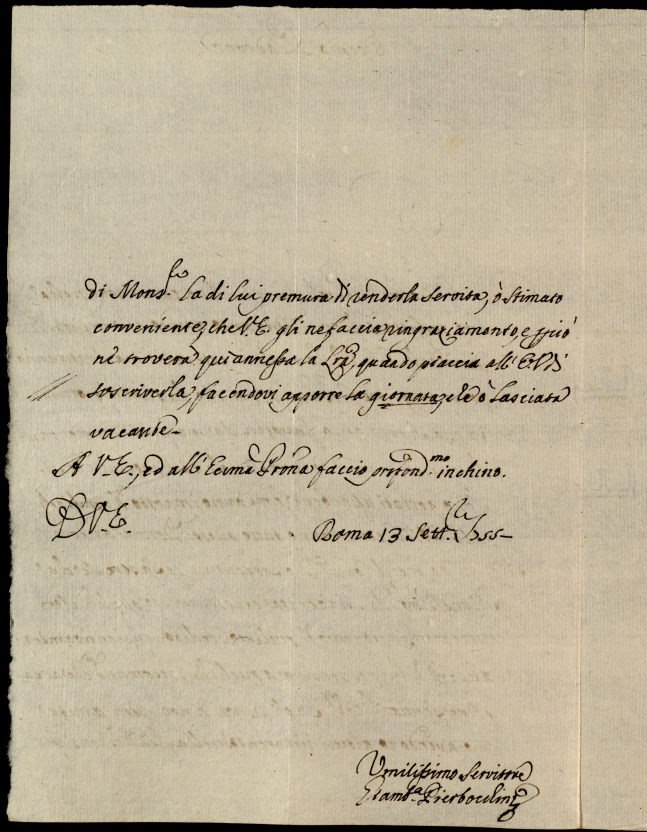 di Mons.re la di lui premura di renderla servita, ò stimato
conveniente, che V.E. gli ne faccia ringraziamento, e perciò
ne troverà qui annessa la Lra, quando piaccia all'E.V. di
soscriverla, facendovi apporre la giornata, che ò lasciata
vacante
A V.E., ed all'Eccma Prona faccio profond.mo inchino.
D V.E.
Roma 13 Sett.re 1755
Umilissimo Servitore
Giamb.a